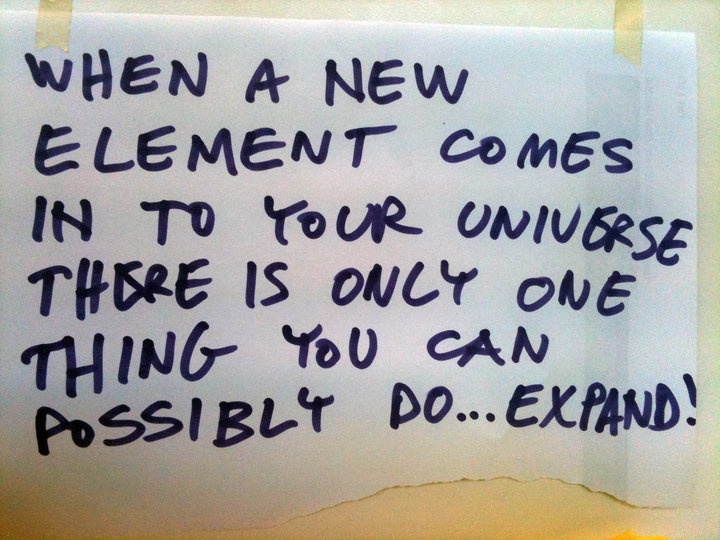 WHEN A NEW
ELEMENT COMES
IN TO YOUR UNIVERSE
THERE IS ONLY ONE
THING YOU CAN
POSSIBLY DO...EXPAND!